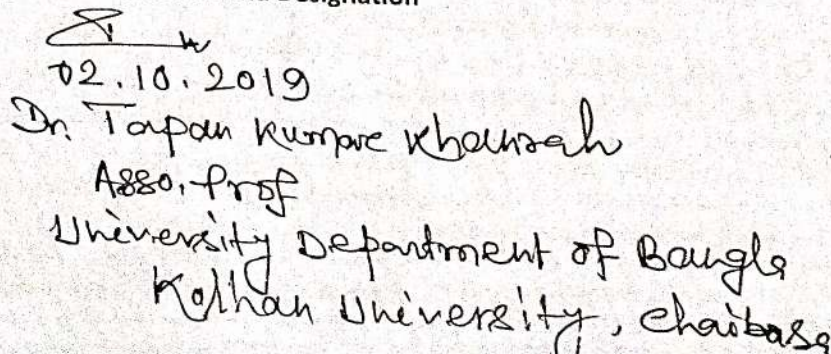 Designation
02.10.2019
Dr. Tapan Kumar Khanrah
Asso. Prof
University Department of Bangla
Kolhan University, Chaibasa